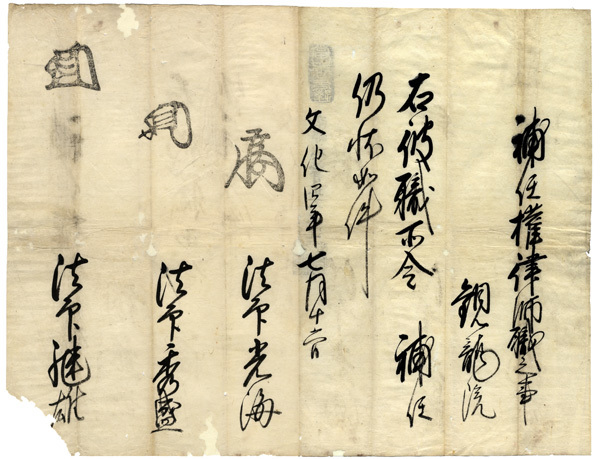 補任權律師職之事
龍院
右彼職所令 補任
仍状如件
文化四年七月十
法印光海
法印秀盛
法印雄